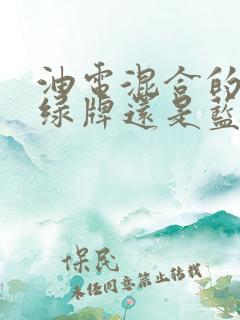 油電混合的
綠牌還是藍
保民
未经同意禁止转载